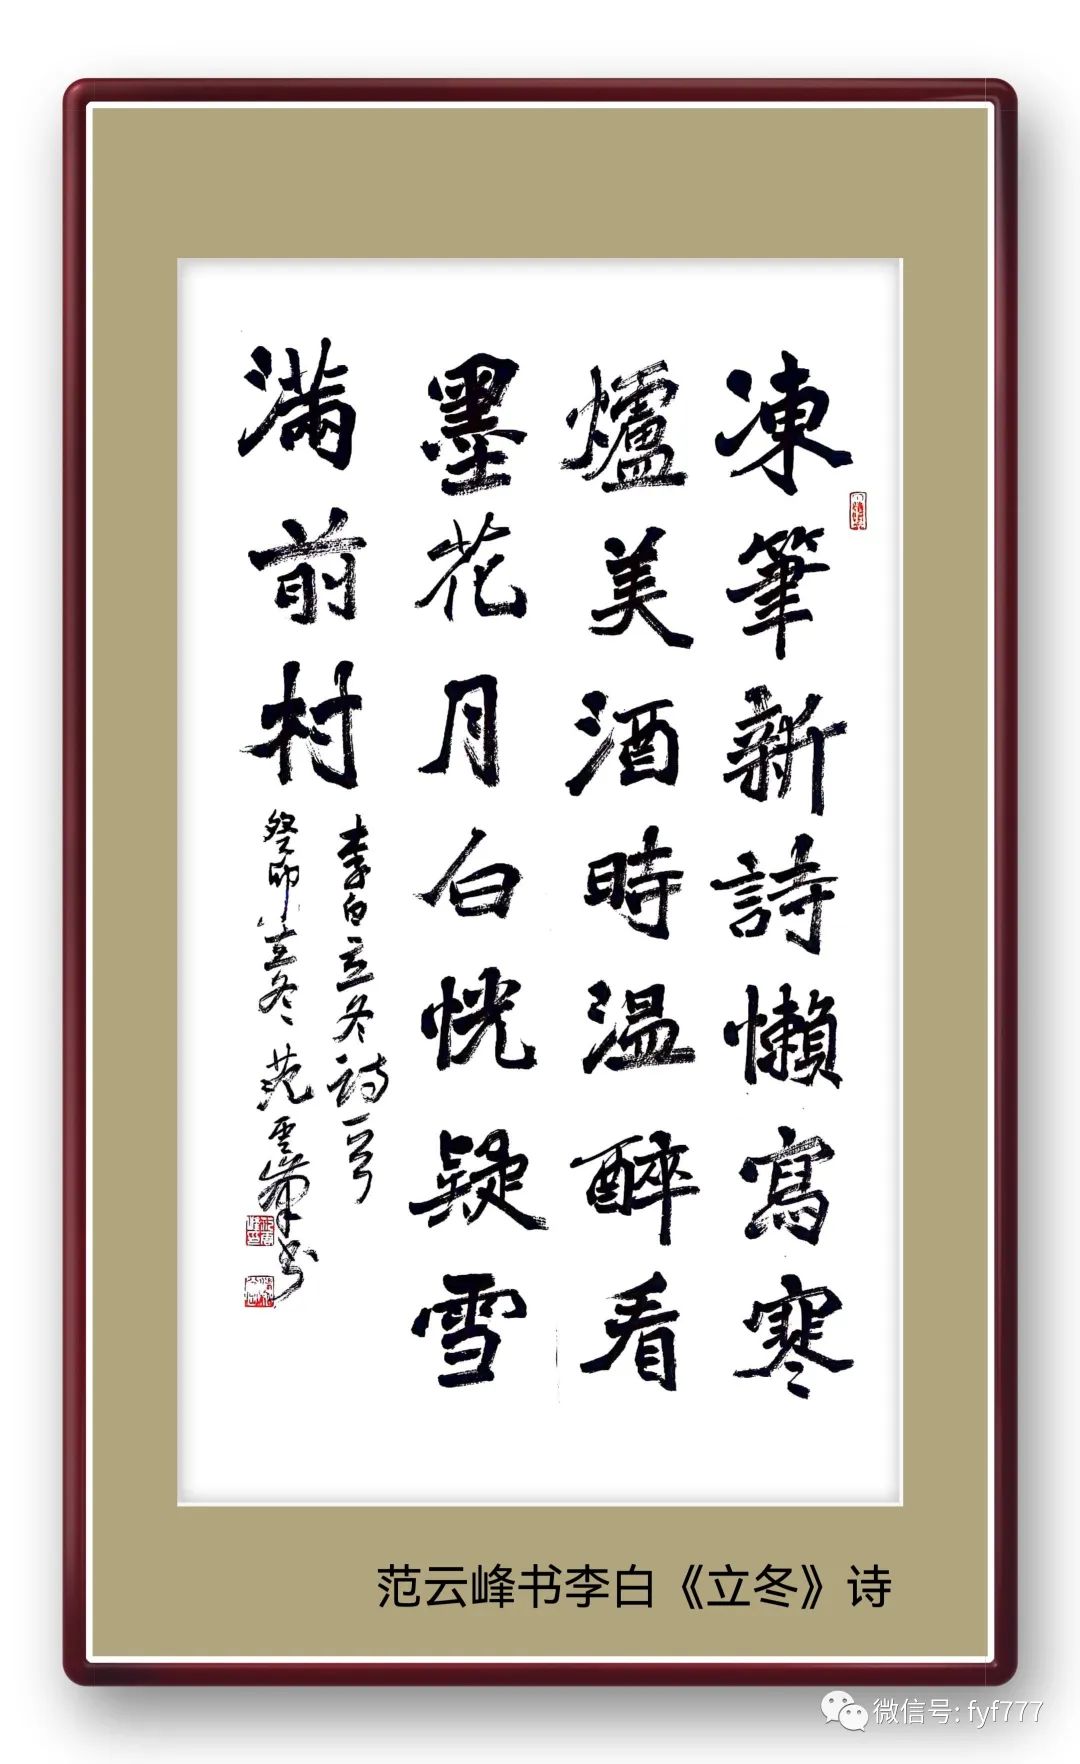 凍筆新詩懶寫寒
爐美酒時温醉看
墨花月白恍疑雪
满前村
李白立冬诗一首
癸卯立冬 范雲峰书
范云峰书李白《立冬》诗
微信号: fyf777